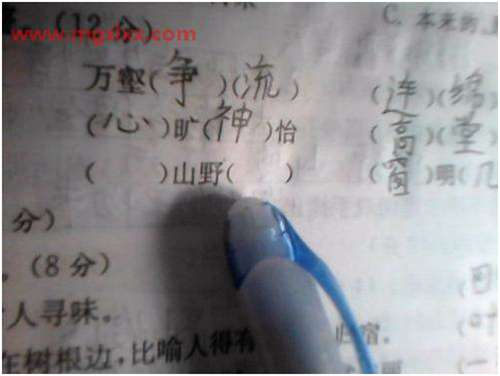 www.mgslxx.com
(12分)
C. 本来的
万壑(争)(流) (连)(绵)
(心)旷(神)怡 (高)(堂)
( )山野( ) (窗)明(几
分)
(8分)
人寻味。
在树根边,比喻人得有 归宿。